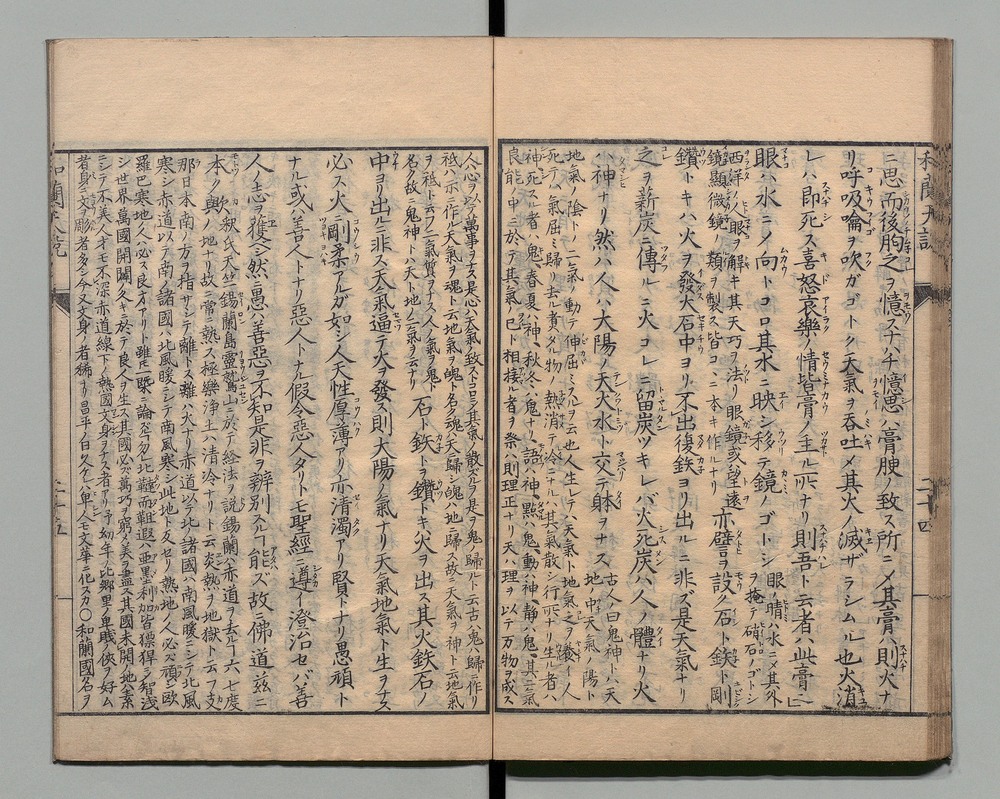 ニ思而後䏚之ヲ憶ス十八千憶思ハ膏腴ノ致ス所ニメ其膏ハ則火ナ
リ呼吸嗆ヲ吹ガゴトク天氣ヲ吞吐メ其火ノ滅ザラシムル也火消
レハ即死ス喜怒哀樂ノ情皆膏ノ主ル所ナリ則吾ト云者ハ此膏ナリ
眼ハ水ニメ向トコロ其水ニ映シ移テ鏡ノゴトシ
眼ノ睛ハ水ニメ其外ヲ掩テ硝石ノゴトシ
西洋人眼ヲ解キ其天巧ヲ法リ眼鏡或望遠
鏡顯微鏡ノ類ヲ製ス皆コニ本キ作ルナリ
亦譬ヲ設ク石ト鉄ト剛
鑽トキハ火ヲ發火石中ヨリ不出復鉄ヨリ出ルニ非ズ是天氣ナリ
之ヲ薪炭ニ傳ルニ火コレニ留炭ツキレバ火死炭ハ人ノ體ナリ火
ハ神ナリ然ハ人ハ大陽ノ天火水ト交テ躰ヲナス
古人曰鬼神トハ天地ノ中天氣ノ陽ト
地氣ノ陰トノ二氣ノ動テ伸屈ミルヲ云也人生レテハ天氣ト地氣之ヲ養イ人
死テハ氣屈ミ歸リ去ル貴ダル物ノ熱消テ冷ニナルハ其氣散シ行所ナリ生ル者ハ
神死スル者ハ鬼春夏ハ神秋冬ハ鬼ナリ語ハ神黙ハ鬼動ハ神靜ハ鬼其二氣
良能ノ中ニ於テ其氣ノ已ト相接ル者ヲ祭ハ則理正ナリ天ハ理ヲ以テ万物ヲ成ス
人ハ心ヲ以テ萬事ヲナス是心ハ天氣ノ致ストコロ其氣ノ散ズル是ヲ鬼ノ歸ルト云古ハ鬼ハ歸ニ作リ
祗ハ示ニ作ル天氣ヲ魂ト云地氣ヲ魄ト名ク魂ハ天ニ歸シ魄ハ地ニ歸ス故ニ天氣ヲ神ト云地氣
ヲ祗ト云フ二氣質ヲナス人ノ氣ヲ鬼ト
名ク故ニ鬼神トハ天ト地ノ二氣ヲ云ナリ
石ト鉄ト鑽トキ火ヲ出ス其火鉄石ノ
中ヨリ出ルニ非ス天氣逼テ火ヲ發ス則大陽ノ氣ナリ天氣地氣ト生ヲナス
必ス火ニ剛柔アルガ如シ人天性厚薄アリ亦清濁アリ賢トナリ愚頑ト
ナル或ハ善人トナリ惡人トナル假令惡人タリト乇聖經ニ導ノ澄治セバ善
人ノ志ヲ獲ン然ニ愚ハ善惡ヲ不知是非ヲ辨別スルヿ能ズ故ニ佛道茲ニ
本ク與ノ地ナリ故ニ常ニ熱ス極樂浄土ハ清冷ナリト云炎熱ヲ地獄ト云フ支
釈氏天竺錫蘭島靈鷲山ニ於テ始法ヲ説錫蘭ハ赤道ヲ去ヿ六七度
那日本南ノ方ヲ指サシテ離トス離ハ火ナリ赤道以テ北ノ諸國ハ南風暖ニシテ北風
寒シ赤道以テ南ノ諸國ハ北風暖ニシテ南風寒シ此地ト友セリ熱地ノ人必ズ頑ニ歐
羅巴寒地ノ人必ス良才アリト雖𪜈一槩ニ論ズ勿レ北韃而韃遐ハ亜墨利加皆慓悍ニシテ智浅
シ世界萬國開闢久キニ於テ良人ヲ生ス其國必ズ萬巧ヲ窮メ美ヲ盡ス其國未開地ハ素
ニシテ不美人才モ不深赤道線下ノ熱國文身ヲナス者アリ予幼年ノ比郷里ノ卑賎ノ俠ヲ好ム
者身ニ文ヲ彫者多シ今ハ文身ノ者稀ナリ昌平ノ日久ク人卑人モ文華ニ化スカ○和蘭國石ヲ
和蘭天説
二十四
和蘭天説
二十五